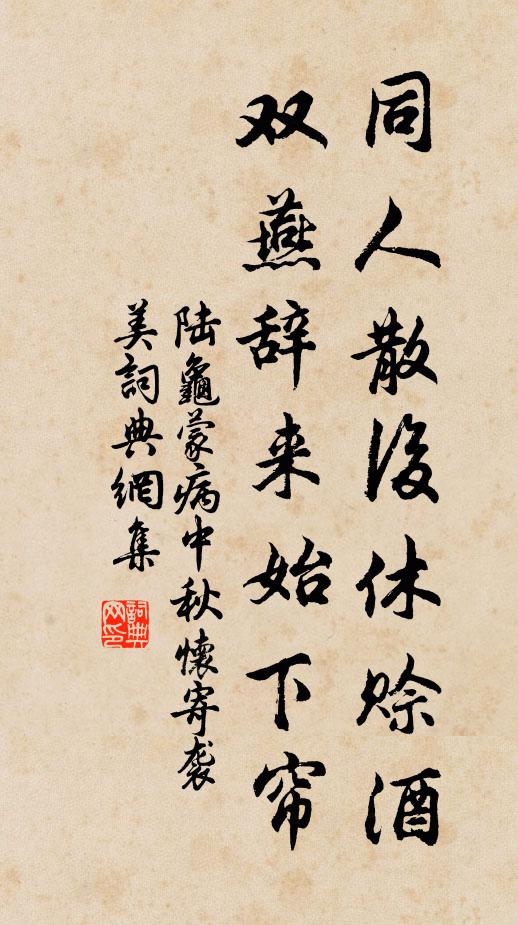 同人散後休赊酒
双燕辞来始下帘
陆龜蒙病中秋懷寄袭
美詞典網集
詞典
网印